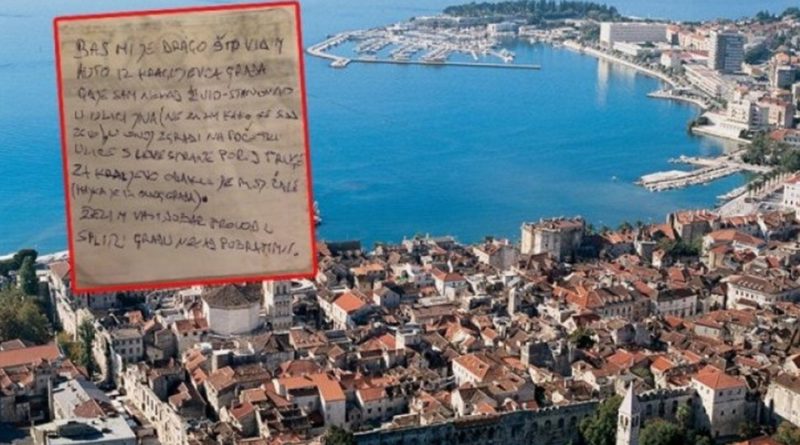 BAŠ MI JE DRAGO ŠTO VIDIM
AUTO IZ KRAGUJEVCA GRADA
GDJE SAM NEKAD ŽIVIO-STANOVAO
U ULICI JNA (NE ZNAM KAKO SE SAD
ZOVE) U ONOJ ZGRADI NA POČETKU
ULICE S LEVE STRANE PORED PRUGE
ZA KRALJEVO ODAKLE JE
(MAJKA JE IZ OVOG GRADA).
ŽELIM VAM DOBAR PROVOD U
SPLITU GRADU NEKAD POBRATIMU.